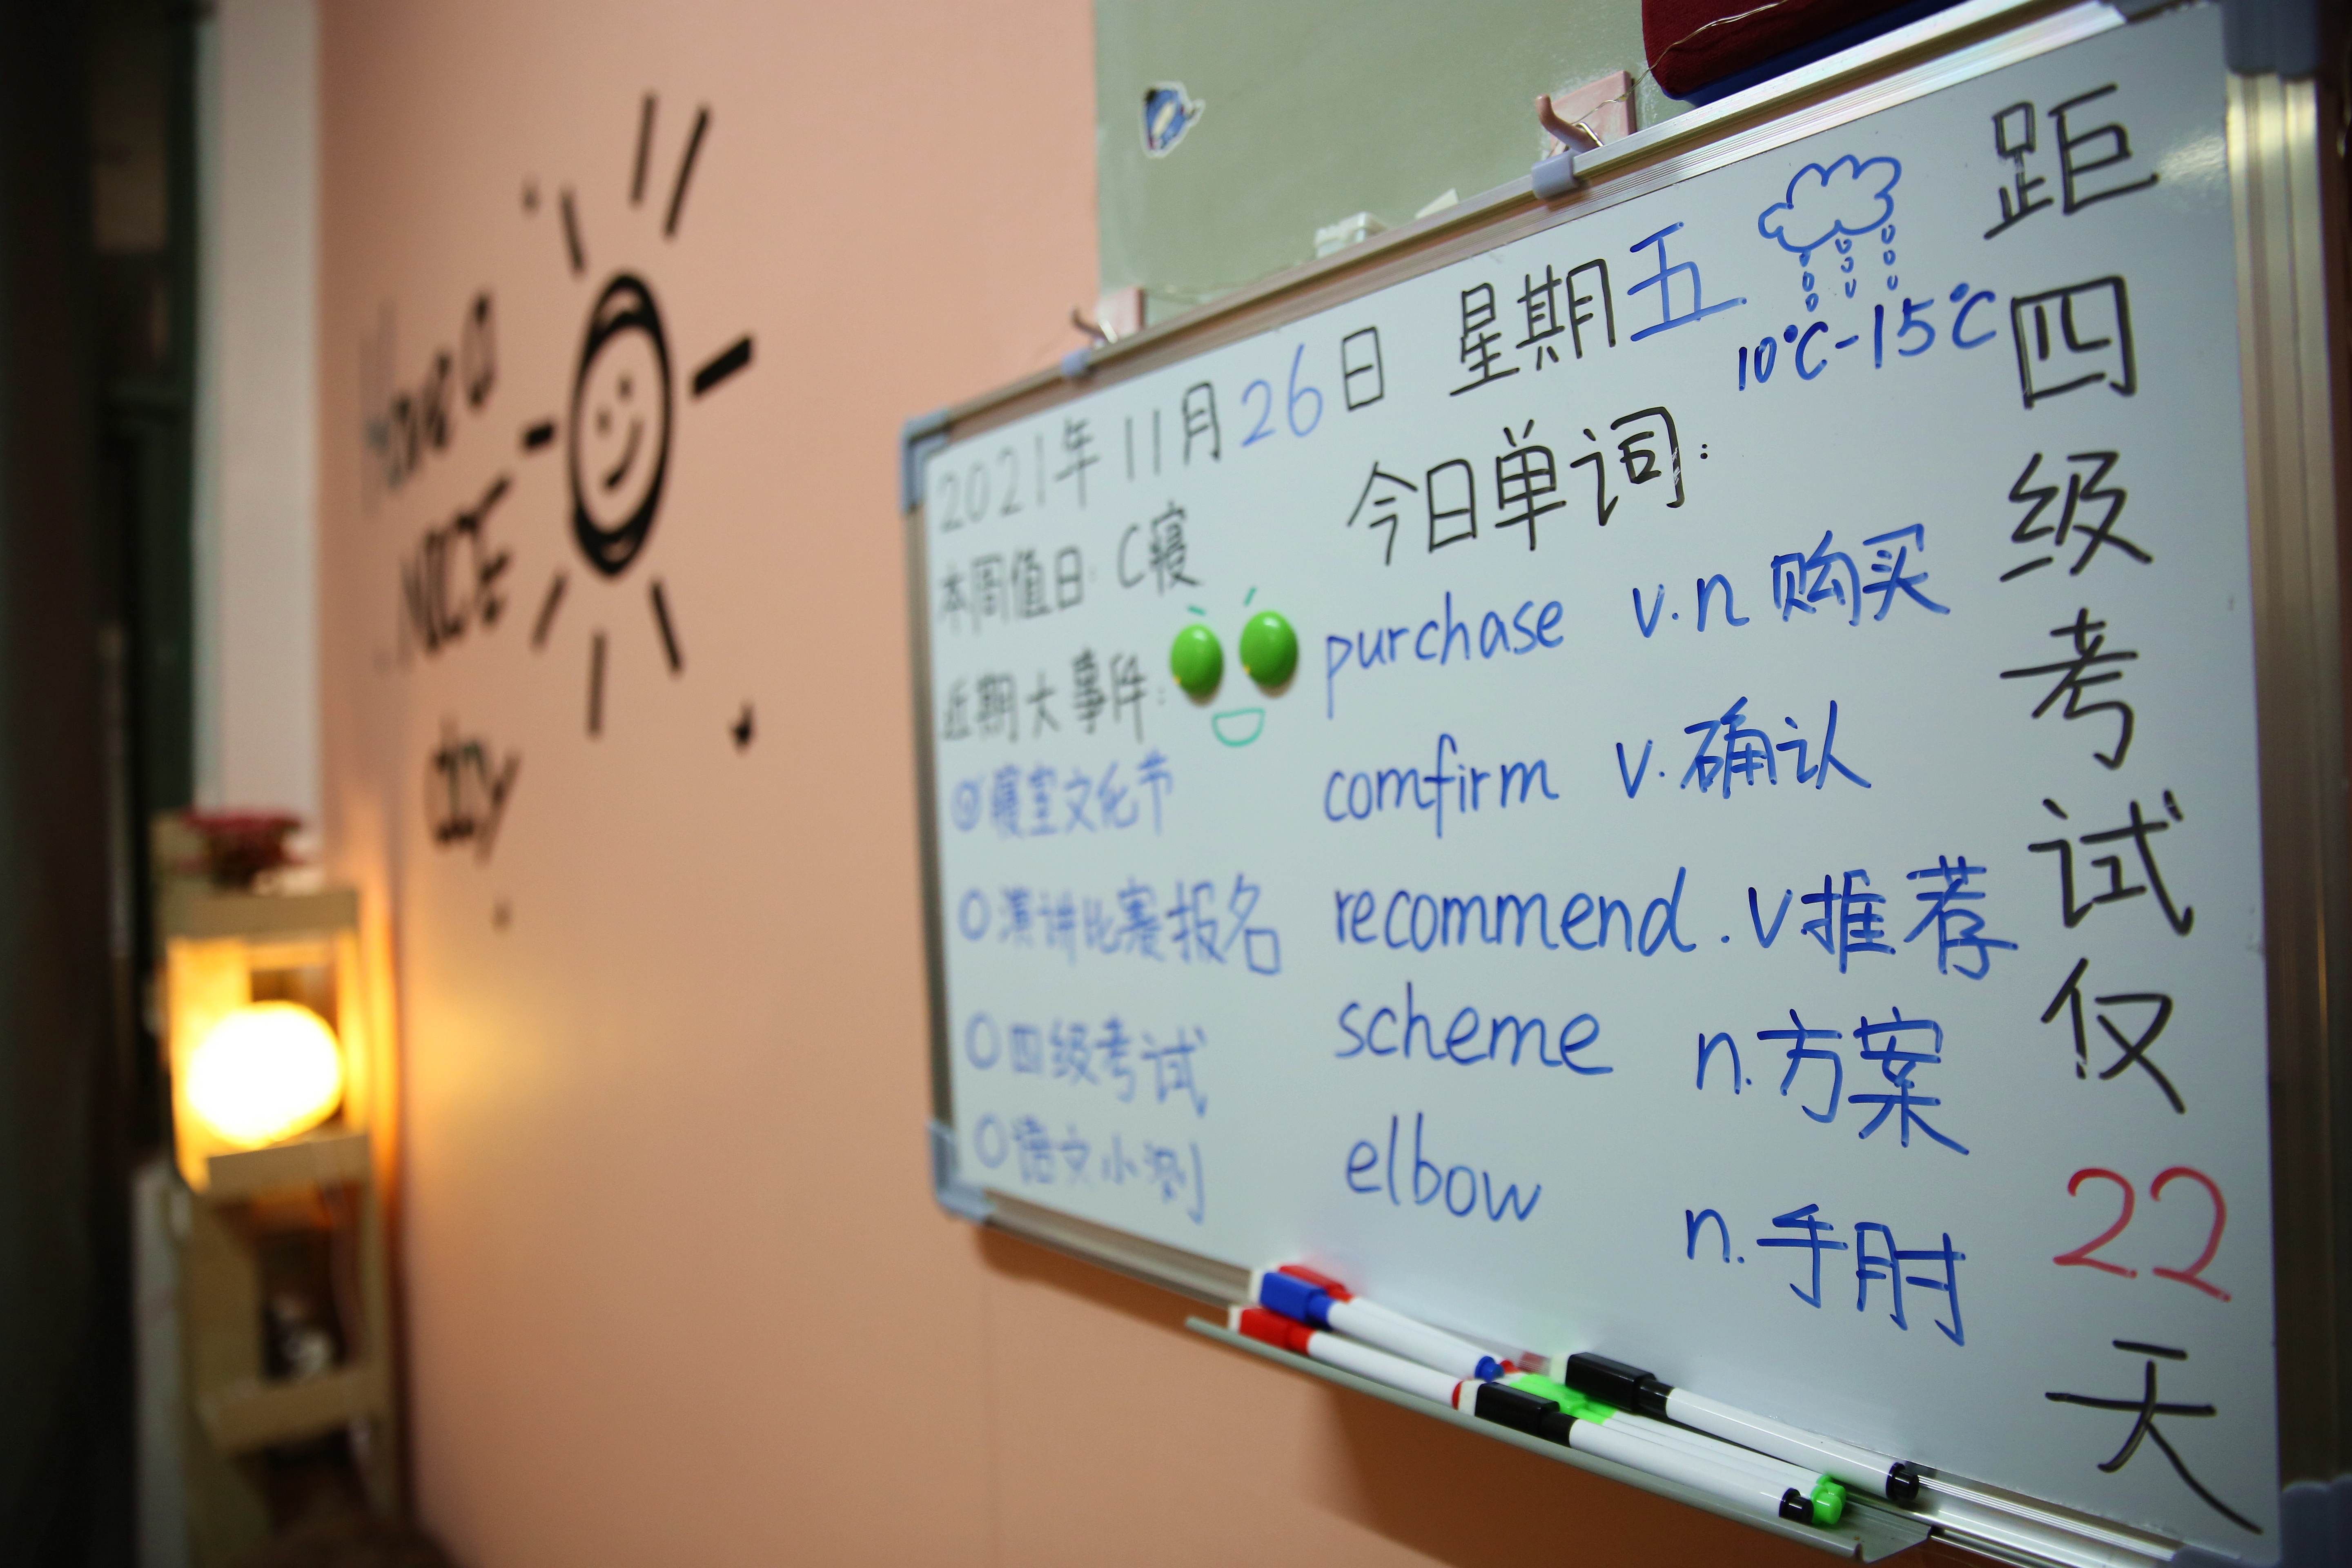 Have a
NICE
day
2021年11月26日 星期五
10℃-15℃
本周值日: C寝
近期大事件:
寝室文化节
演讲比赛报名
四级考试
语文小测
今日单词:
purchase v.n 购买
comfirm v.确认
recommend .v推荐
scheme n.方案
elbow n.手肘
距四级考试仅22天